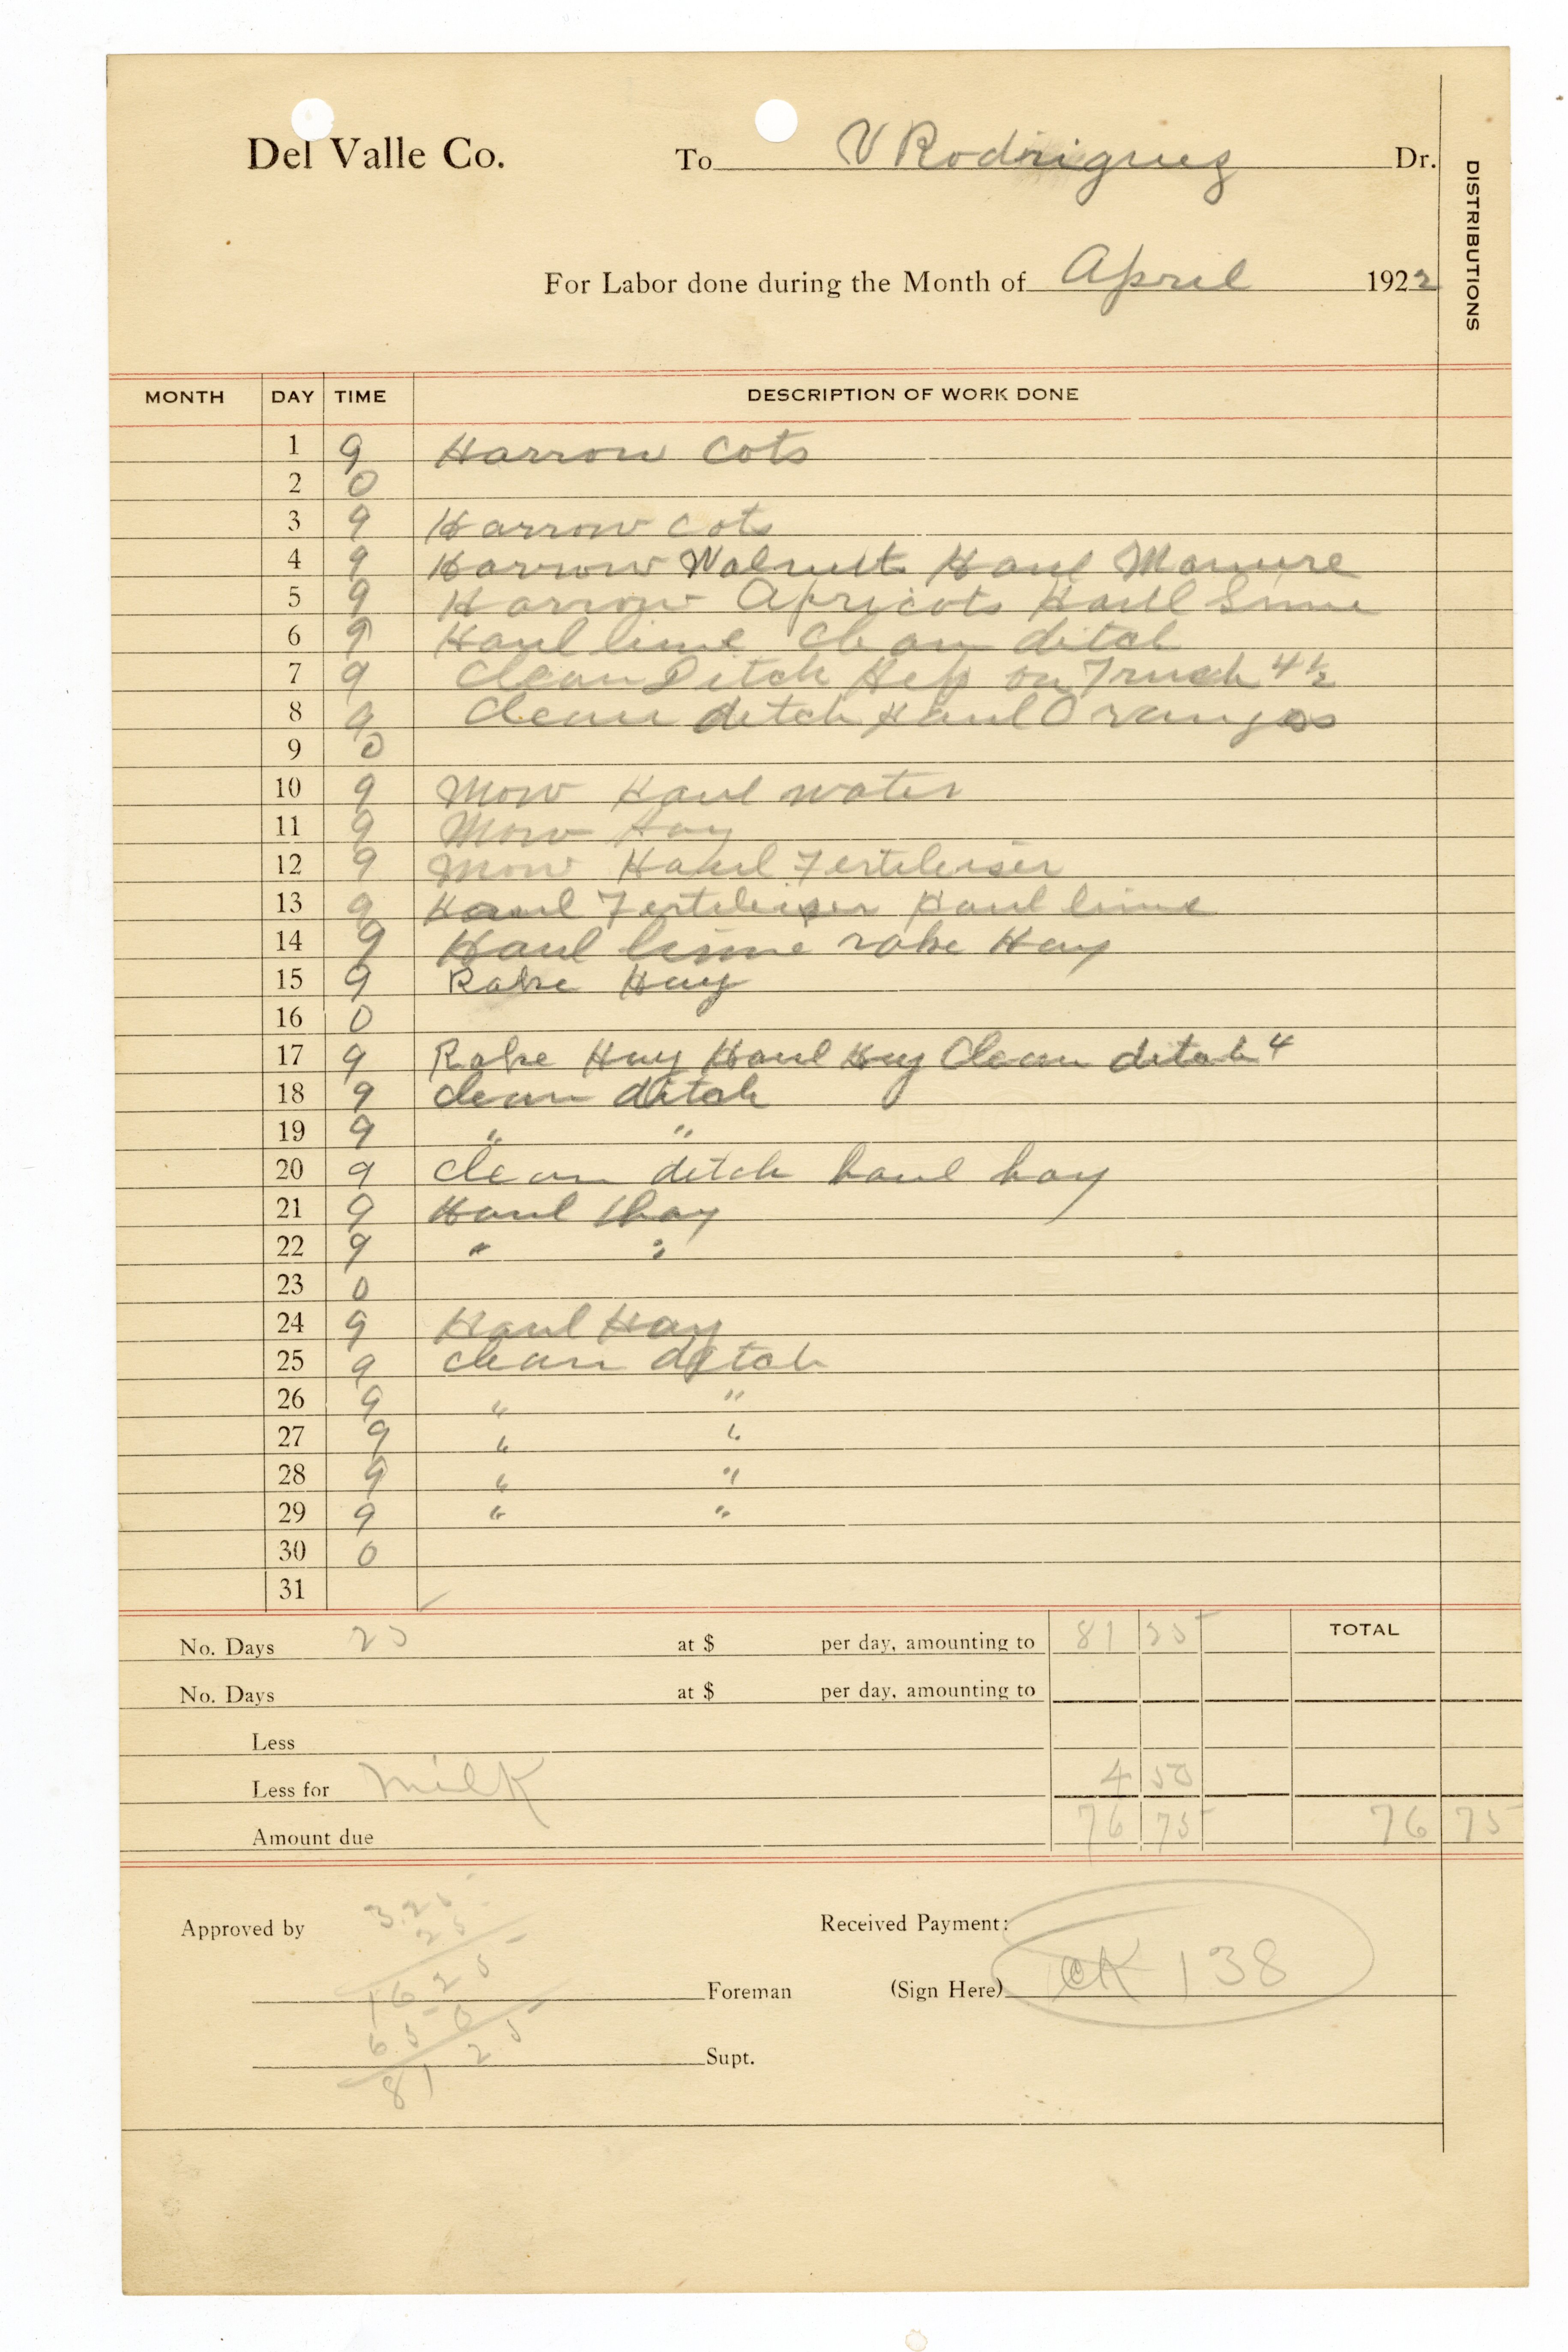 Del Valle Co. To V Rodriguez Dr.
DISTRIBUTIONS
For Labor done during the Month of April 1922
MONTH DAY TIME DESCRIPTION OF WORK DONE
1 9 Harrow Cots
2 0
3 9 Harrow cots
4 9 Harrow Walnuts Haul Manure
5 9 Harrow Apricots Haul Lime
6 9 Haul lime Clean ditch
7 9 Clean Ditch Help on Truck 4½
8 9 Clean ditch Haul Oranges
9 0
10 9 Mow Haul water
11 9 Mow Hay
12 9 Mow Haul Fertileiser
13 9 Haul Fertileiser Haul lime
14 9 Haul lime rake Hay
15 9 Rake Hay
16 0
17 9 Rake Hay Haul Hay Clean ditch 4
18 9 clean ditch
19 9 " "
20 9 clean ditch haul hay
21 9 Haul hay
22 9 " "
23 0
24 9 Haul Hay
25 9 clean ditch
26 9 " "
27 9 " "
28 9 " "
29 9 " "
30 0
31
No. Days 25 at $ per day, amounting to 81 25 TOTAL
No. Days at $ per day, amounting to
Less
Less for Milk 4 50
Amount due 76 75 76 75
3.25
Approved by 25 Received Payment:
1625
Foreman (Sign Here) CK 138
650
Supt.
8125